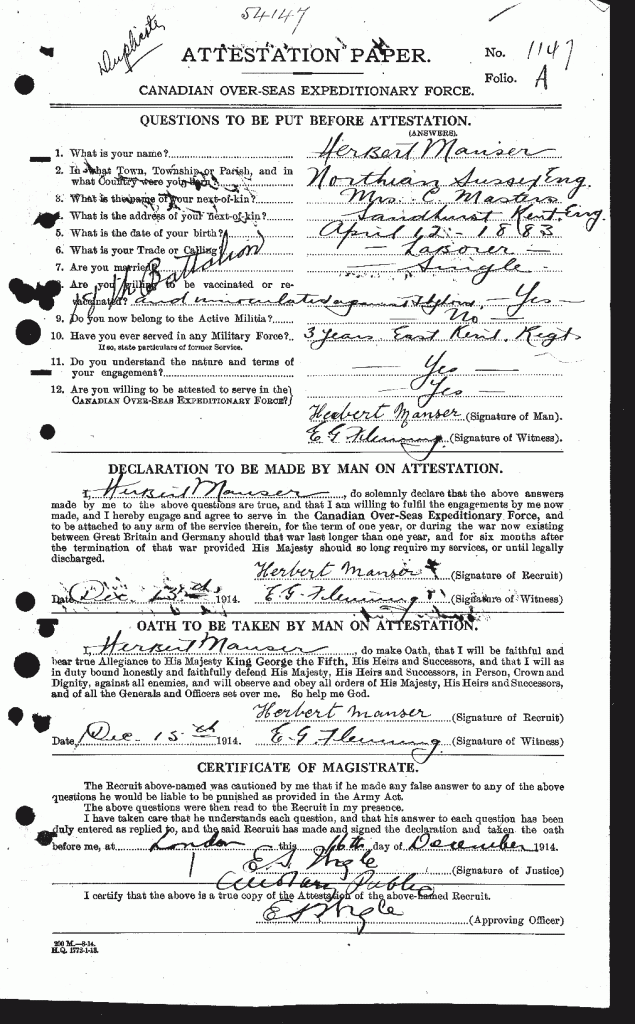 54147
Duplicate
ATTESTATION PAPER.
No. 1147
Folio. A
CANADIAN OVER-SEAS EXPEDITIONARY FORCE.
QUESTIONS TO BE PUT BEFORE ATTESTATION.
(ANSWERS).
1. What is your name? Herbert Manser
2. In what Town, Township or Parish, and in
what Country were you born? Northian Sussex Eng.
3. What is the name of your next-of-kin? Mrs. C Masters
4. What is the address of your next-of-kin? Sandhurst Kent, Eng
5. What is the date of your birth? April 12 - 1883
6. What is your Trade or Calling? Laborer
7. Are you married? Single
8. Are you willing to be vaccinated or re-
vaccinated? and innoculated against Typhoid. Yes
Battalion
9. Do you now belong to the Active Militia? No
10. Have you ever served in any Military Force? 3 years East Kent Regt
If so, state particulars of former Service.
11. Do you understand the nature and terms of
your engagement? Yes
12. Are you willing to be attested to serve in the Yes
CANADIAN OVER-SEAS EXPEDITIONARY FORCE?
Herbert Manser (Signature of Man).
E G Fleming (Signature of Witness).
DECLARATION TO BE MADE BY MAN ON ATTESTATION.
I, Herbert Manser, do solemnly declare that the above answers
made by me to the above questions are true, and that I am willing to fulfil the engagements by me now
made, and I hereby engage and agree to serve in the Canadian Over-Seas Expeditionary Force, and
to be attached to any arm of the service therein, for the term of one year, or during the war now existing
between Great Britain and Germany should that war last longer than one year, and for six months after
the termination of that war provided His Majesty should so long require my services, or until legally
discharged.
Herbert Manser (Signature of Recruit)
Date Dec. 1914. E. G. Fleming (Signature of Witness)
OATH TO BE TAKEN BY MAN ON ATTESTATION.
I, Herbert Manser, do make Oath, that I will be faithful and
bear true Allegiance to His Majesty King George the Fifth, His Heirs and Successors, and that I will as
in duty bound honestly and faithfully defend His Majesty, His Heirs and Successors, in Person, Crown and
Dignity, against all enemies, and will observe and obey all orders of His Majesty, His Heirs and Successors,
and of all the Generals and Officers set over me. So help me God.
Herbert Manser (Signature of Recruit)
Date Dec. 15th 1914. E. G. Fleming (Signature of Witness)
CERTIFICATE OF MAGISTRATE.
The Recruit above-named was cautioned by me that if he made any false answer to any of the above
questions he would be liable to be punished as provided in the Army Act.
The above questions were then read to the Recruit in my presence.
I have taken care that he understands each question, and that his answer to each question has been
duly entered as replied to, and the said Recruit has made and signed the declaration and taken the oath
before me, at London this 16th day of December 1914.
(Signature of Justice)
Notary Public
I certify that the above is a true copy of the Attestation of the above-named Recruit.
(Approving Officer)
200 M.—8-14.
H.Q. 1772-1-13.